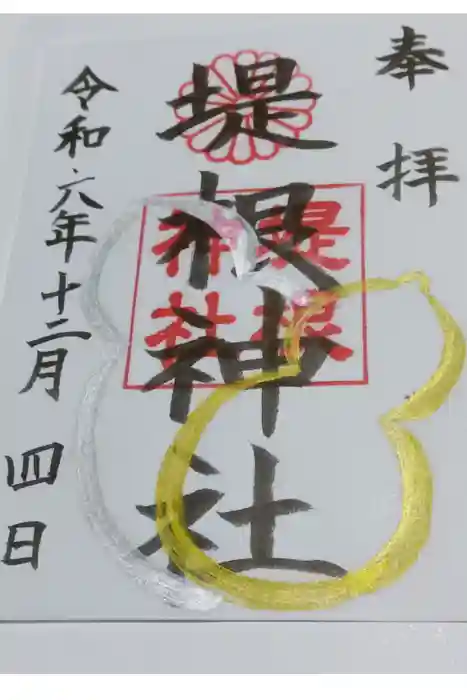 奉拝
堤根神社
堤根
神社
令和六年十二月四日